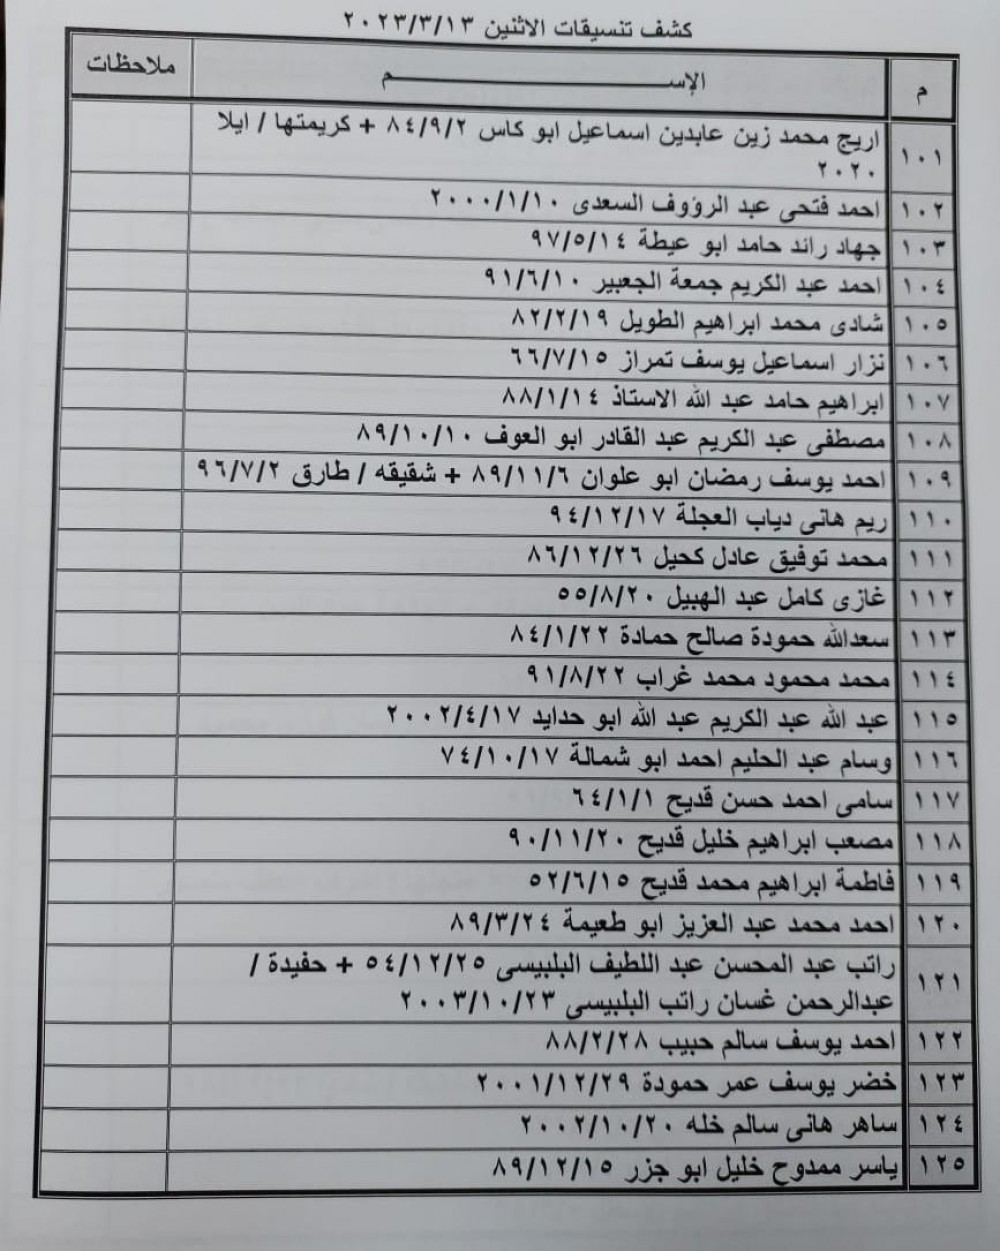 كشف تنسيقات الاثنين ٢٠٢٣/٣/١٣
م الإســـــــــــم ملاحظات
١٠١ اريج محمد زين عابدين اسماعيل ابو كاس ٨٤/٩/٢ + كريمتها / ايلا
٢٠٢٠
١٠٢ احمد فتحى عبد الرؤوف السعدى ٢٠٠٠/١/١٠
١٠٣ جهاد رائد حامد ابو عيطة ٩٧/٥/١٤
١٠٤ احمد عبد الكريم جمعة الجعبير ٩١/٦/١٠
١٠٥ شادى محمد ابراهيم الطويل ٨٢/٢/١٩
١٠٦ نزار اسماعيل يوسف تمراز ٦٦/٧/١٥
١٠٧ ابراهيم حامد عبد الله الاستاذ ٨٨/١/١٤
١٠٨ مصطفى عبد الكريم عبد القادر ابو العوف ٨٩/١٠/١٠
١٠٩ احمد يوسف رمضان ابو علوان ٨٩/١١/٦ + شقيقه / طارق ٩٦/٧/٢
١١٠ ريم هانى دياب العجلة ٩٤/١٢/١٧
١١١ محمد توفيق عادل كحيل ٨٦/١٢/٢٦
١١٢ غازى كامل عبد الهبيل ٥٥/٨/٢٠
١١٣ سعدالله حمودة صالح حمادة ٨٤/١/٢٢
١١٤ محمد محمود محمد غراب ٩١/٨/٢٢
١١٥ عبد الله عبد الكريم عبد الله ابو حدايد ٢٠٠٢/٤/١٧
١١٦ وسام عبد الحليم احمد ابو شمالة ٧٤/١٠/١٧
١١٧ سامى احمد حسن قديح ٦٤/١/١
١١٨ مصعب ابراهيم خليل قديح ٩٠/١١/٢٠
١١٩ فاطمة ابراهيم محمد قديح ٥٢/٦/١٥
١٢٠ احمد محمد عبد العزيز ابو طعيمة ٨٩/٣/٢٤
١٢١ راتب عبد المحسن عبد اللطيف البلبيسى ٥٤/١٢/٢٥ + حفيدة /
عبدالرحمن غسان راتب البلبيسى ٢٠٠٣/١٠/٢٣
١٢٢ احمد يوسف سالم حبيب ٨٨/٢/٢٨
١٢٣ خضر يوسف عمر حمودة ٢٠٠١/١٢/٢٩
١٢٤ ساهر هانى سالم خله ٢٠٠٢/١٠/٢٠
١٢٥ ياسر ممدوح خليل ابو جزر ٨٩/١٢/١٥